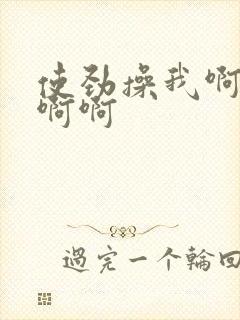 使劲操我啊
啊啊
過完一个輪回